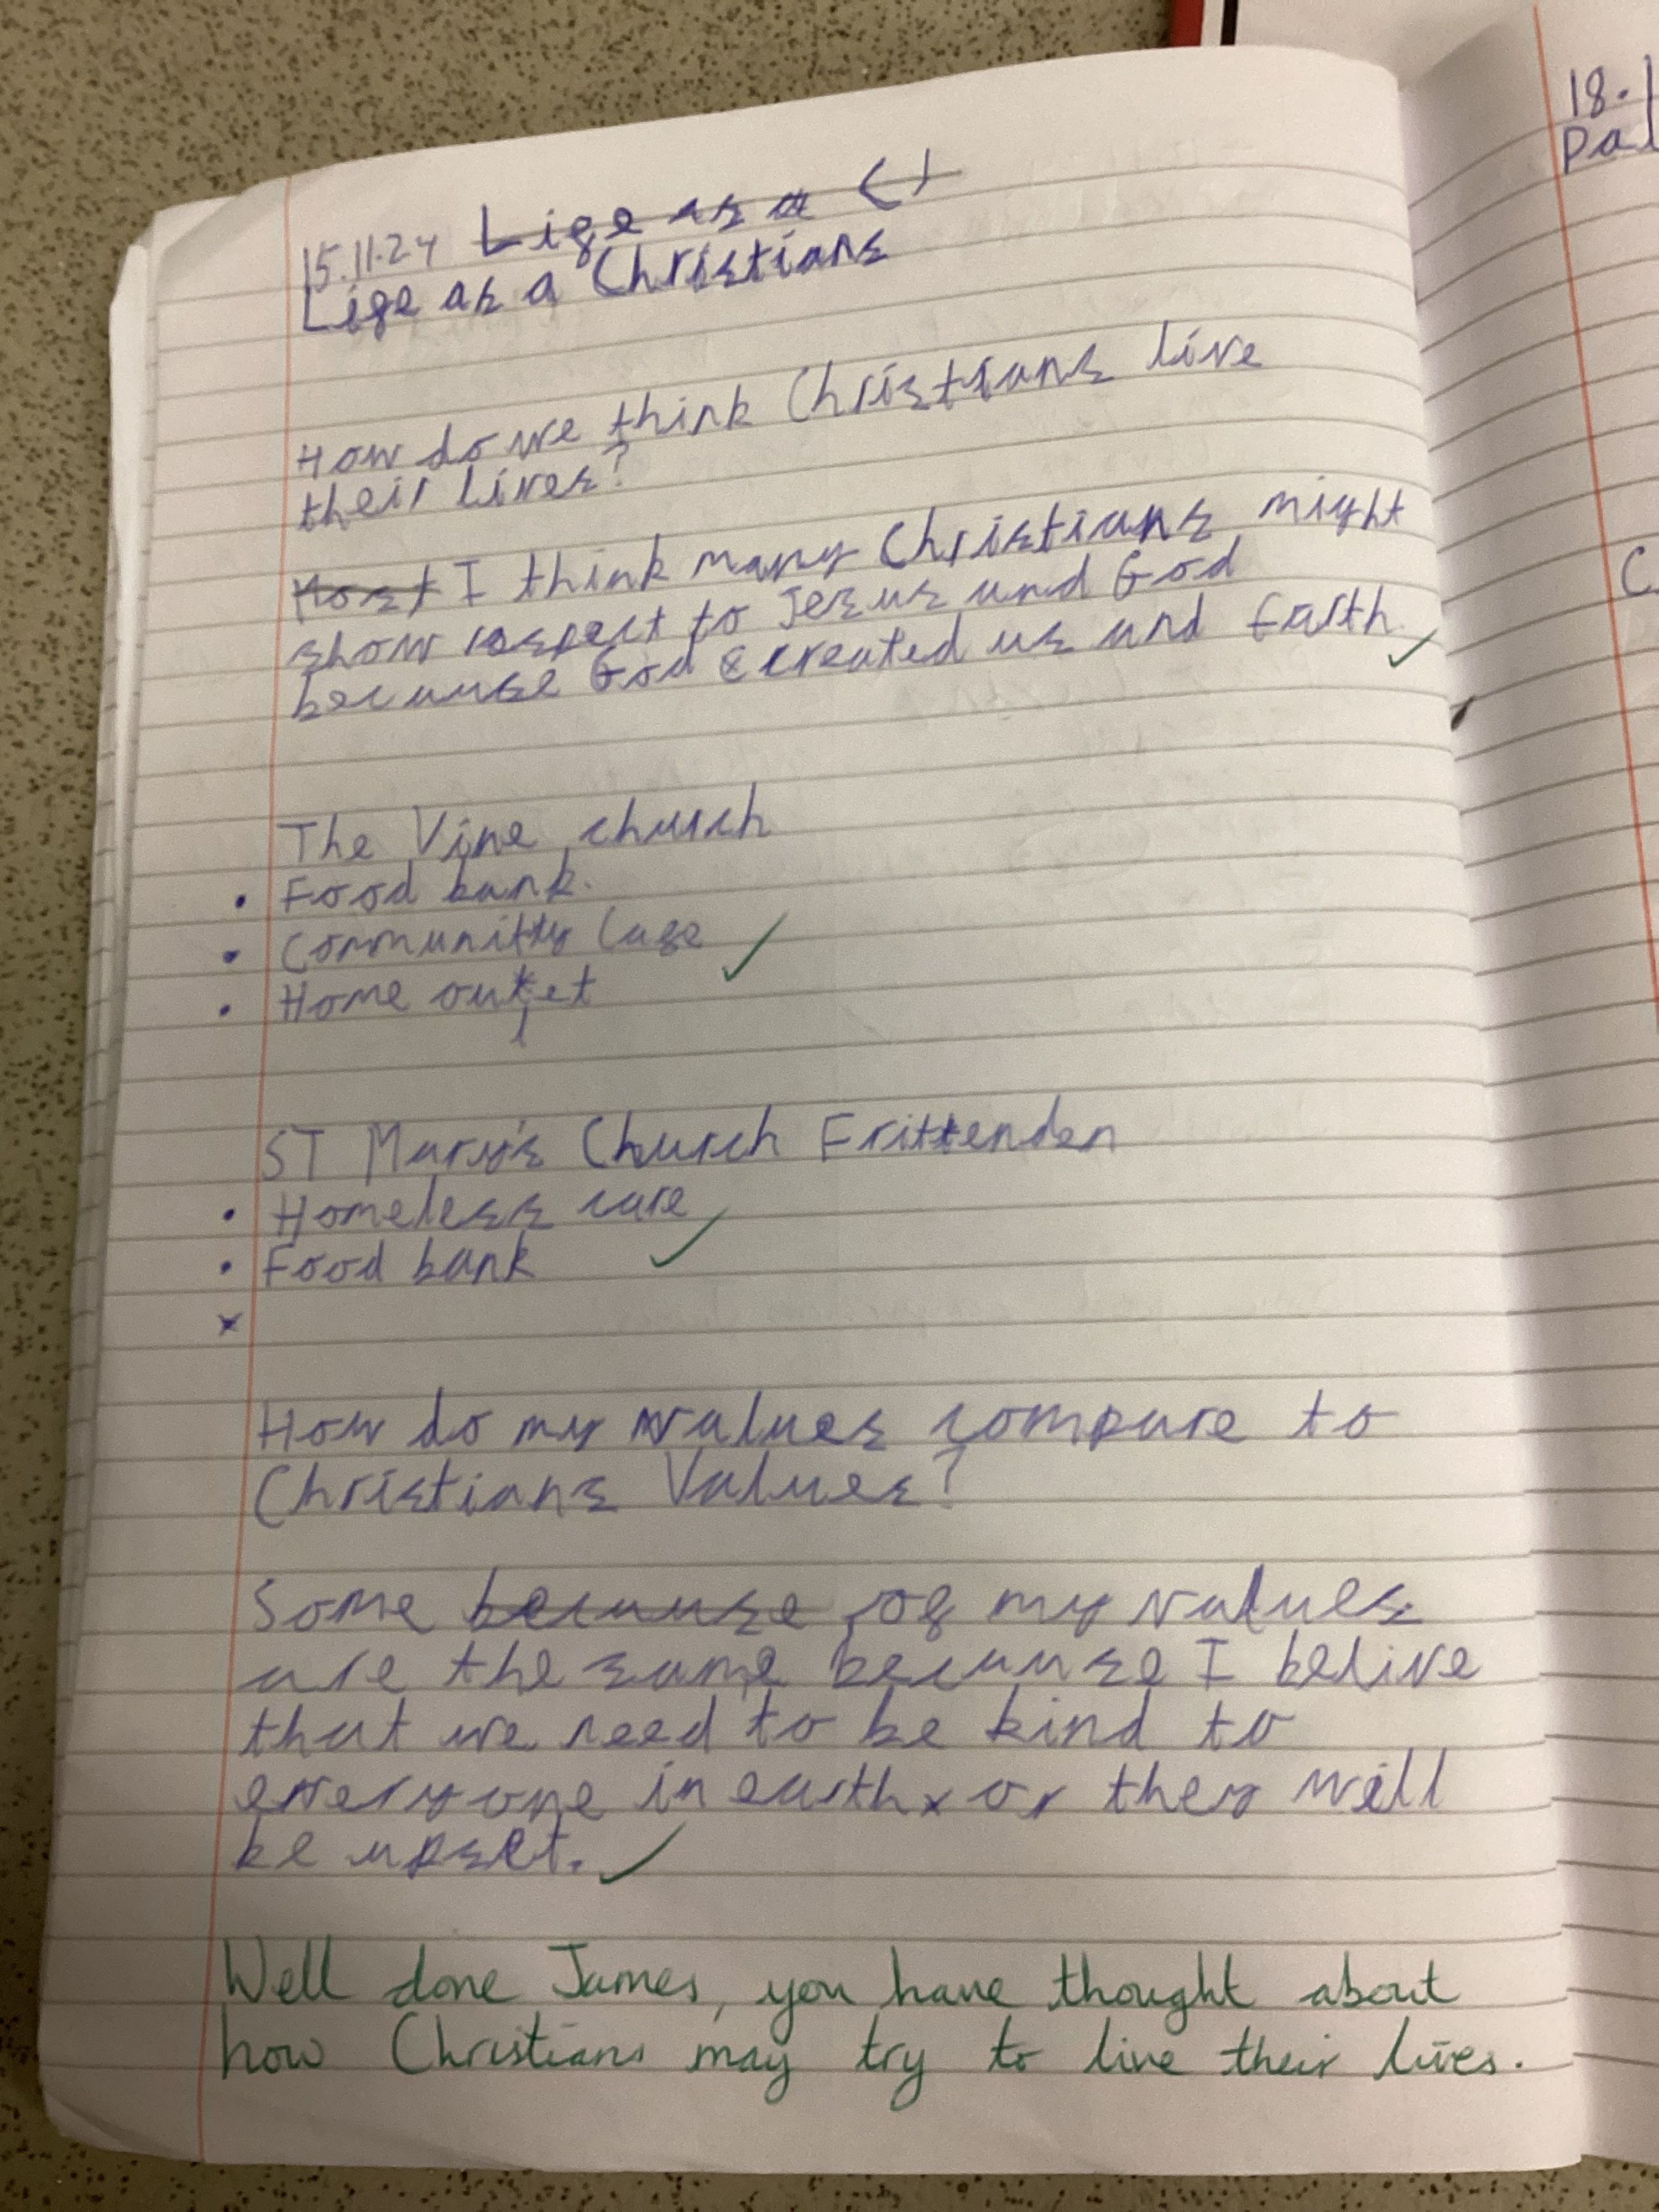 15.11.24 Life as a C
Life as a Christians
How do we think Christians live
their lives?
Most I think many Christians might
show respect to Jesus and God
because God created us and Earth.
The Vine church
• Food bank.
• Community Cafe
• Home outlet
ST Mary's Church Frittenden
• Homeless care
• Food bank
How do my values compare to
Christians Values?
Some because of my values
are the same because I belive
that we need to be kind to
everyone in earth or they will
be upset.
Well done James, you have thought about
how Christians may try to live their lives.
18.
Pal
C